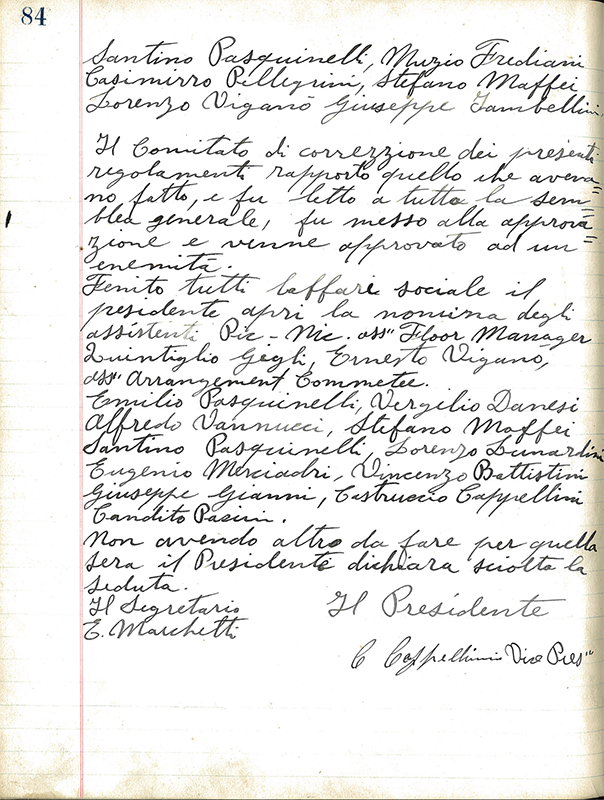 84
Santino Pasquinelli, Muzio Frediani
Casimirro Pellegrini, Stefano Maffei
Lorenzo Viganó Giuseppe Tambellini.
Il Comitato di correzzione dei presenti
regolamenti rapporto quello che aveva=
no fatto, e fu letto a tutta la sem=
blea generale, fu messo alla approva=
zione e venne approvato ad un
enemitá.
Fenito tutti l'affari sociale il
presidente apri la nomina degli
assistenti Pic-Nic. ass" Floor Manager
Quintiglio Gegli, Ernesto Vigano,
ass" Arrangement Commetee.
Emilio Pasquinelli, Vergilio Danesi
Alfredo Vannucci, Stefano Maffei
Santino Pasquinelli, Lorenzo Lunardini
Eugenio Merciadri, Vincenzo Battistini
Giuseppe Gianni, Castruccio Cappellini
Candito Pasini.
Non avendo altro da fare per quella
sera il Presidente dichiara sciolta la
seduta.
Il Segretario Il Presidente
E. Marchetti
C Cappellini Vice Pres"